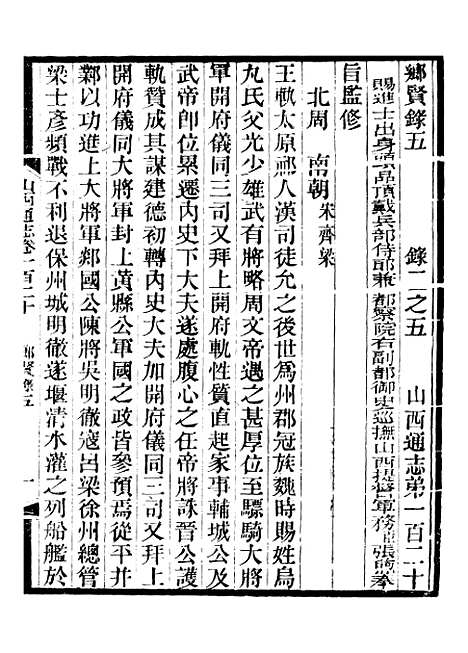 鄉賢錄五　錄二之五　山西通志弟一百二十
賜進士出身頭品頂戴兵部侍郎兼都察院右副都御史巡撫山西提督軍務臣張煦奉
旨監修
北周　南朝宋齊梁
王軌太原祁人漢司徒允之後世爲州郡冠族魏時賜姓烏
丸氏父光少雄武有將略周文帝遇之甚厚位至驃騎大將
軍開府儀同三司又拜上開府軌性質直起家事輔城公及
武帝卽位累遷內史下大夫遂處腹心之任帝將誅晉公護
軌贊成其謀建德初轉內史大夫加開府儀同三司又拜上
開府儀同大將軍封上黃縣公軍國之政皆參預焉從平并
鄴以功進上大將軍郯國公陳將吳明徹寇呂梁徐州總管
梁士彥頻戰不利退保州城明徹遂堰清水灌之列船艦於
山西通志卷一百二十　鄉賢錄五　一